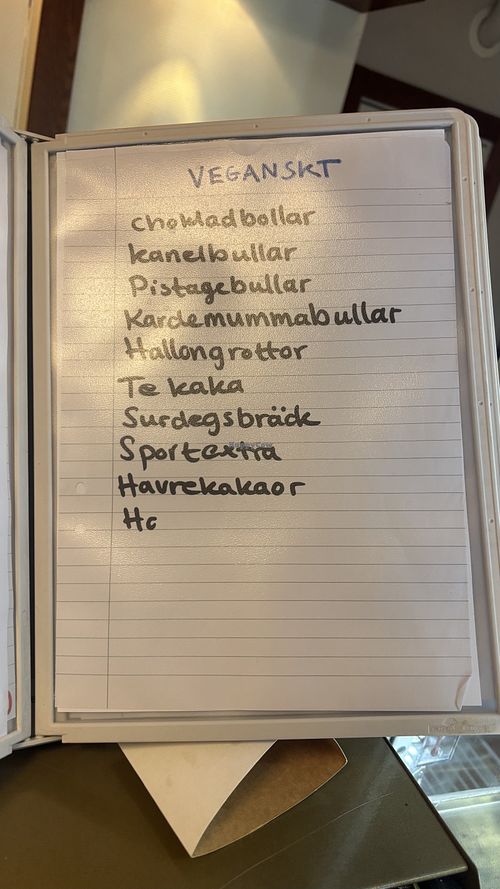 VEGANSKT
chokladbollar
kanelbullar
Pistagebullar
Kardemummabullar
Hallongrottor
Te kaka
Surdegsbräck
Sportextra
Havrekakaor
Hc